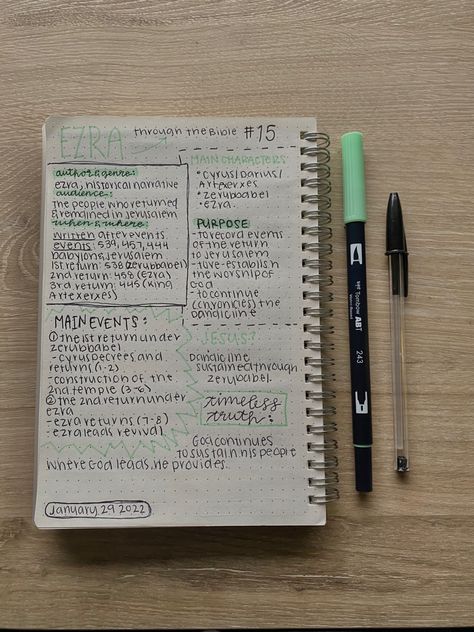 EZRA through the Bible #15
author & genre:
ezra, historical narrative
audience:
The people who returned
& remained in Jerusalem
when & where:
written after events
events: 539, 457, 444
babylon & Jerusalem
1st return: 538 (zerubbabel)
2nd return: 458 (Ezra)
3rd return: 445 (King
Artexerxes)
MAIN CHARACTERS
*Cyrus/Darius/
Artexerxes
*zerubbabel
*ezra
PURPOSE
-to record events
of the return
to Jerusalem
-to re-establish
the worship of
God
-to continue
(chronicles) the
davidic line
MAIN EVENTS:
① the 1st return under
zerubbabel
-cyrus decrees and
returns (1-2)
-construction of the
2nd temple (3-6)
② the 2nd return under
ezra
-ezra returns (7-8)
-ezra leads revival
JESUS?
Davidic line
sustained through
zerubabel.
timeless
truth:
God continues
to sustain his people
where God leads, He provides.
January 29 2022
Tombow ABT
243